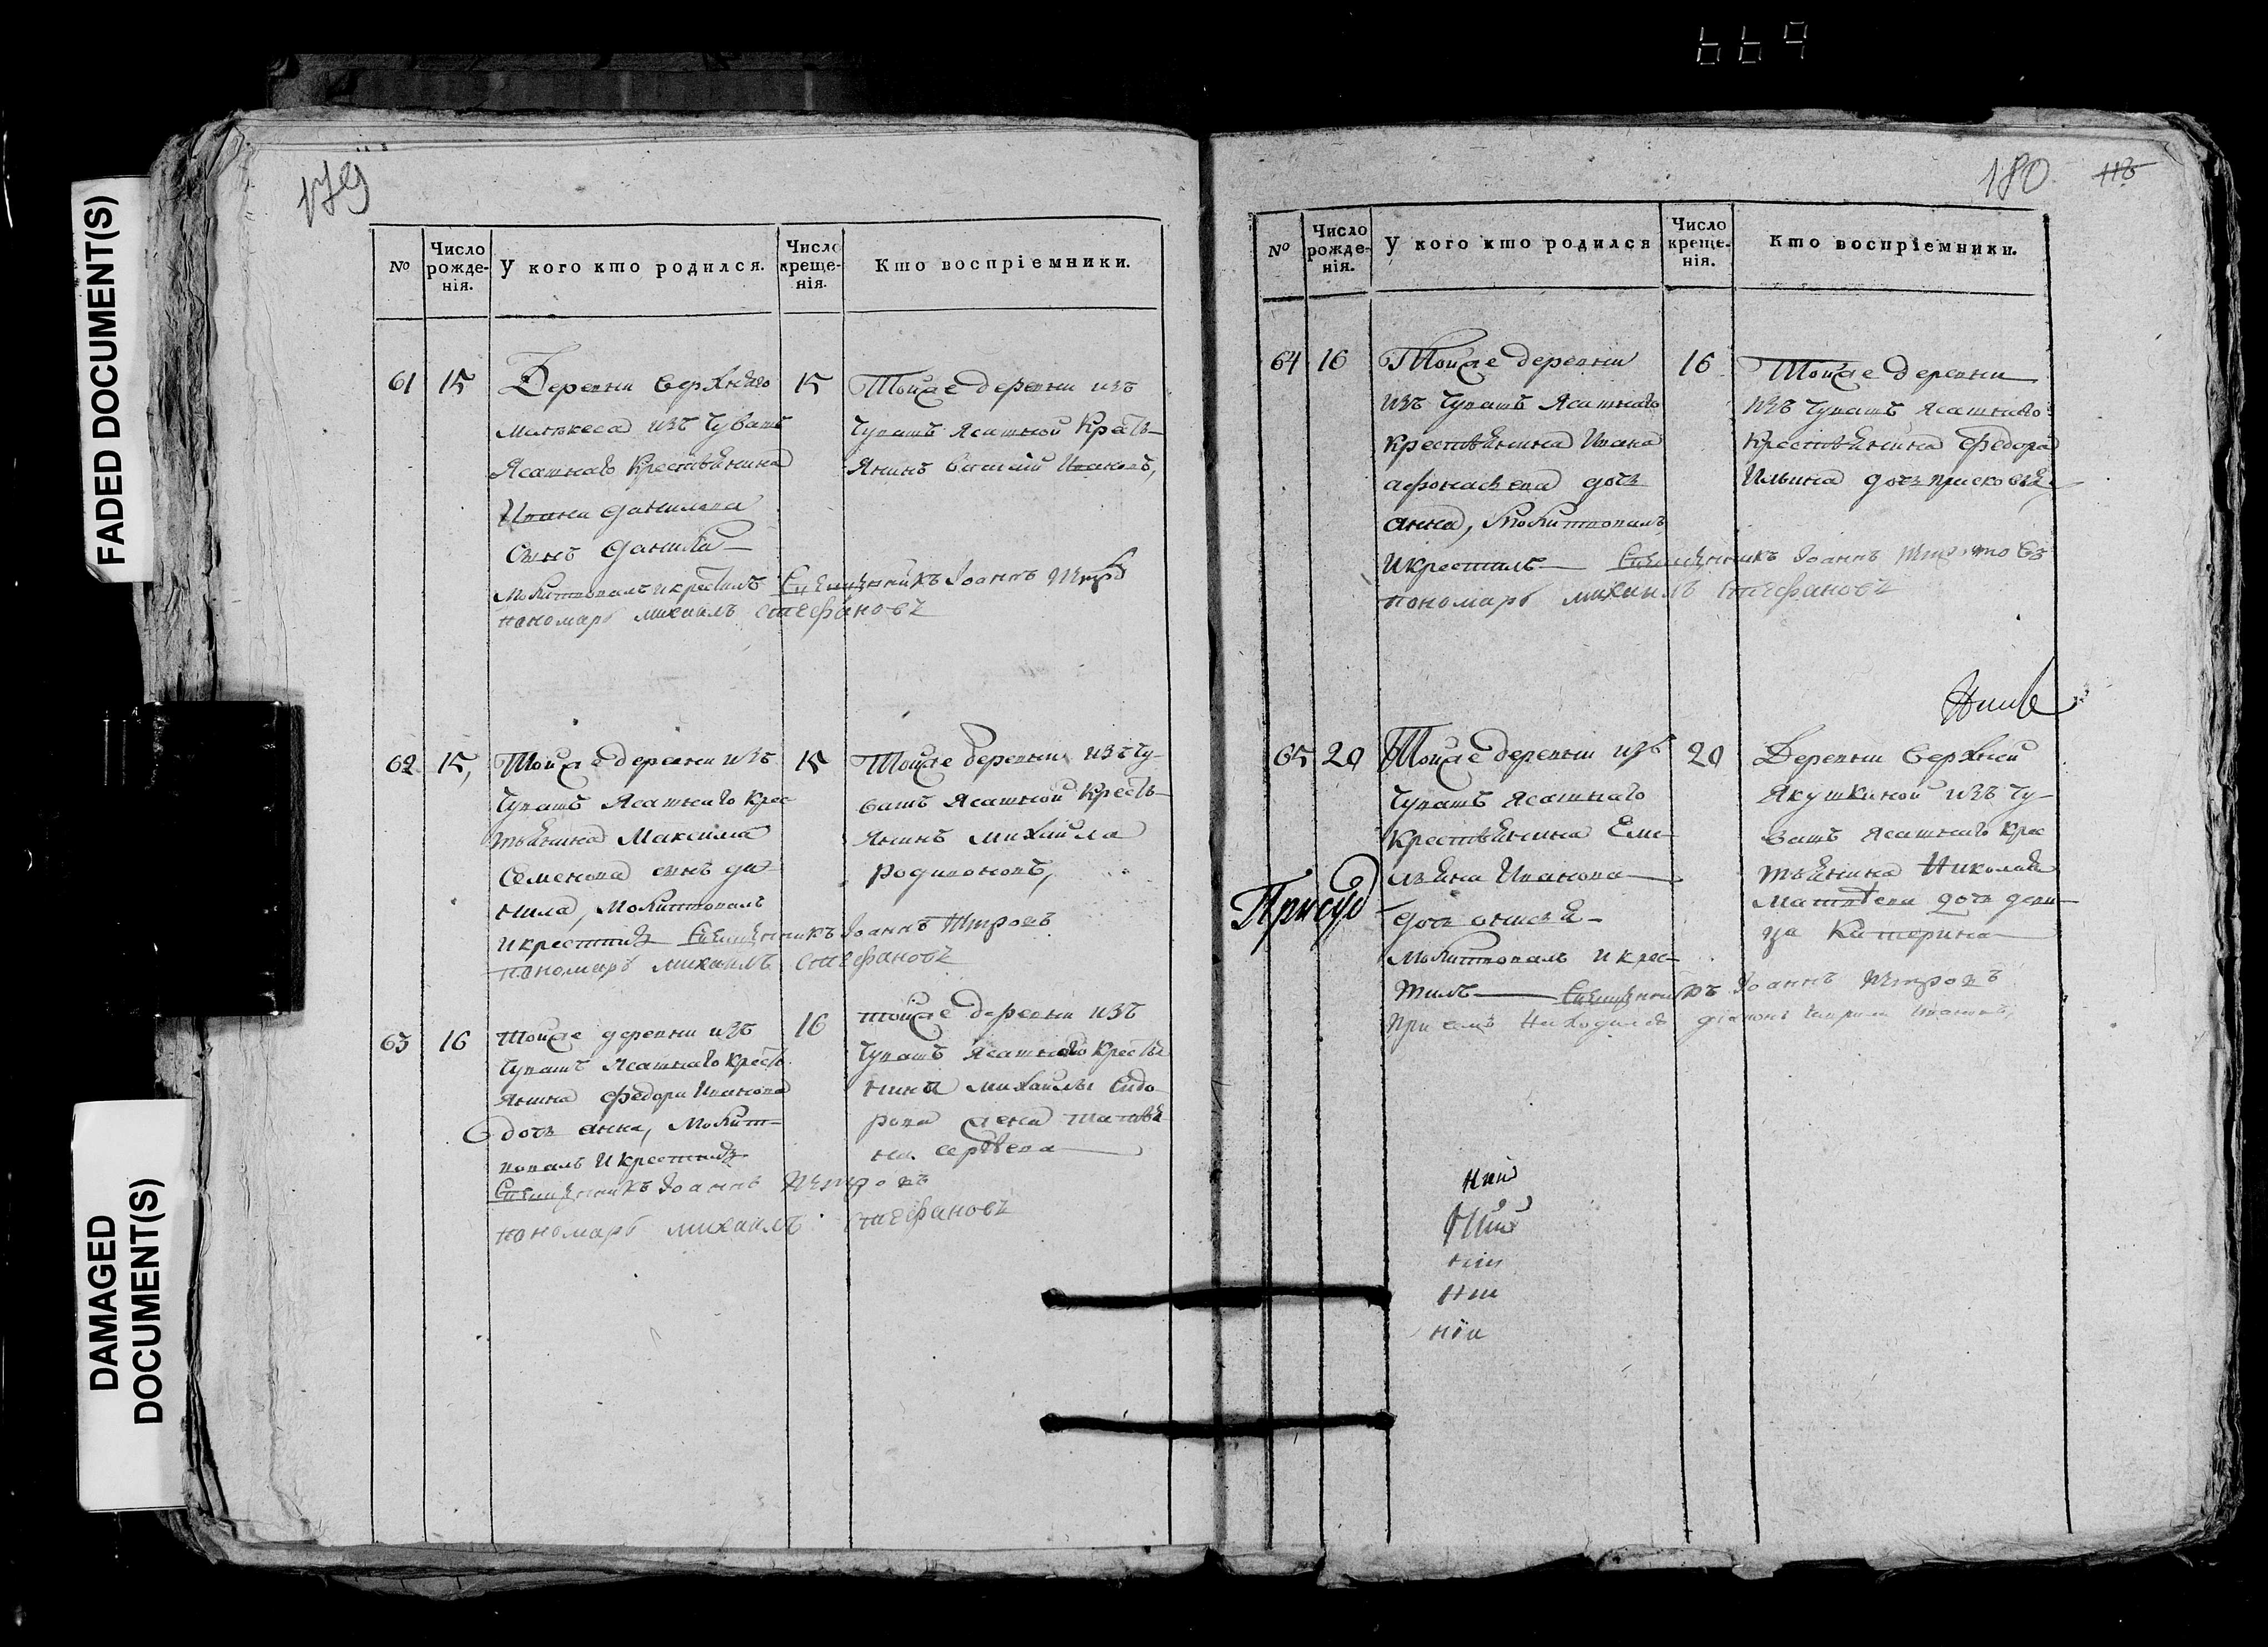 669
FADED DOCUMENT(S)
DAMAGED
DOCUMENT(S)
179
№
Число рожде-нія.
У кого кто родился.
Число креще-нія.
Кто воспріемники.
61 15
Деревни верхняго
малыкеса изъ Чувашъ
Ясашнаго Крестьянина
Ивана данилова
сынъ данила
молитвовалъ и крестилъ Священникъ Іоаннъ
пономарь михаилъ стефановъ
15
Тойже деревни изъ
Чувашъ Ясашной Кресть-
янинъ Ивановъ,
62 15,
Тойже деревни изъ
Чувашъ Ясашнаго Крес
тьянина Максима
Семенова сынъ да
нила, Молитвовалъ
и крестилъ Священникъ Іоаннъ Петровъ
пономарь михаилъ стефановъ
15
Тойже деревни изъ Чу-
вашъ Ясашной Кресть-
янинъ михайла
родивоновъ,
63 16
Тойже деревни изъ
Чувашъ Ясашнаго Кресть
янина федора Иванова
дочь анна, Молит-
вовалъ и крестилъ
Священникъ Іоаннъ Петровъ
пономарь михаилъ стефановъ
16
тойже деревни изъ
Чувашъ Ясашнаго Крестья
нина михайлы Сидо
рова жена
180 118
№
Число рожде-нія.
У кого кто родился
Число креще-нія.
Кто воспріемники.
64 16
Тойже деревни
изъ Чувашъ Ясашнаго
крестьянина Ивана
афонасьева дочь
анна, Молитвовалъ
и крестилъ Священникъ Іоаннъ Петровъ
пономарь михаилъ стефановъ
16
Тойже деревни
изъ Чувашъ Ясашнаго
Крестьянина Федора
Ильина дочь прасковья
65 20
Тойже деревни изъ
Чувашъ Ясашнаго
крестьянина Еме-
льяна Иванова
дочь анисья
Молитвовалъ и крес-
тилъ Священникъ Іоаннъ Петровъ
При семъ находился діаконъ Ивановъ,
20
Деревни верхней
Якушкиной изъ Чу-
вашъ Ясашнаго Крес
тьянина Николая
Матвеева дочь деви
ца Катерина
Присуд
ний
ний
нии
нии
нїи